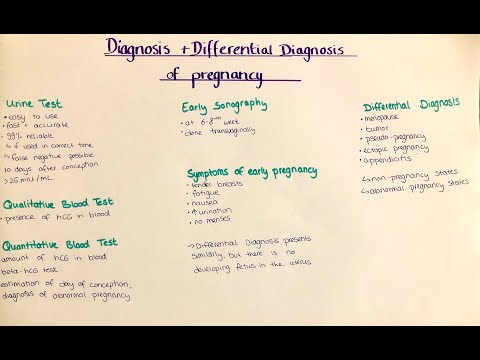 Diagnosis + Differential Diagnosis
of pregnancy
Urine Test
• easy to use
• fast + accurate
• 99% reliable
↳ if used in correct time
↳ false negative possible
• 10 days after conception
• >25 mIU/mL
Qualitative Blood Test
• presence of hCG in blood
Quantitative Blood Test
amount of hCG in blood
beta-hCG test
estimation of day of conception,
diagnosis of abnormal pregnancy
Early Sonography
• at 6-8th week
• done transvaginally
Symptoms of early pregnancy
• tender breasts
• fatigue
• nausea
• ↑ urination
• no menses
→ Differential Diagnosis presents
similarly, but there is no
developing fetus in the uterus
Differential Diagnosis
• menopause
• tumor
• pseudo-pregnancy
• ectopic pregnancy
• appendicitis
↳ non-pregnancy states
↳ abnormal pregnancy states